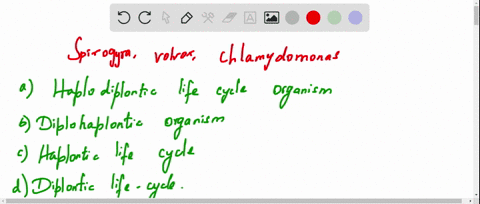 Spirogyra, volvox, chlamydomonas
a) Haplodiplontic life cycle organism
b) Diplohaplontic organism
c) Haplontic life cycle
d) Diplontic life-cycle.